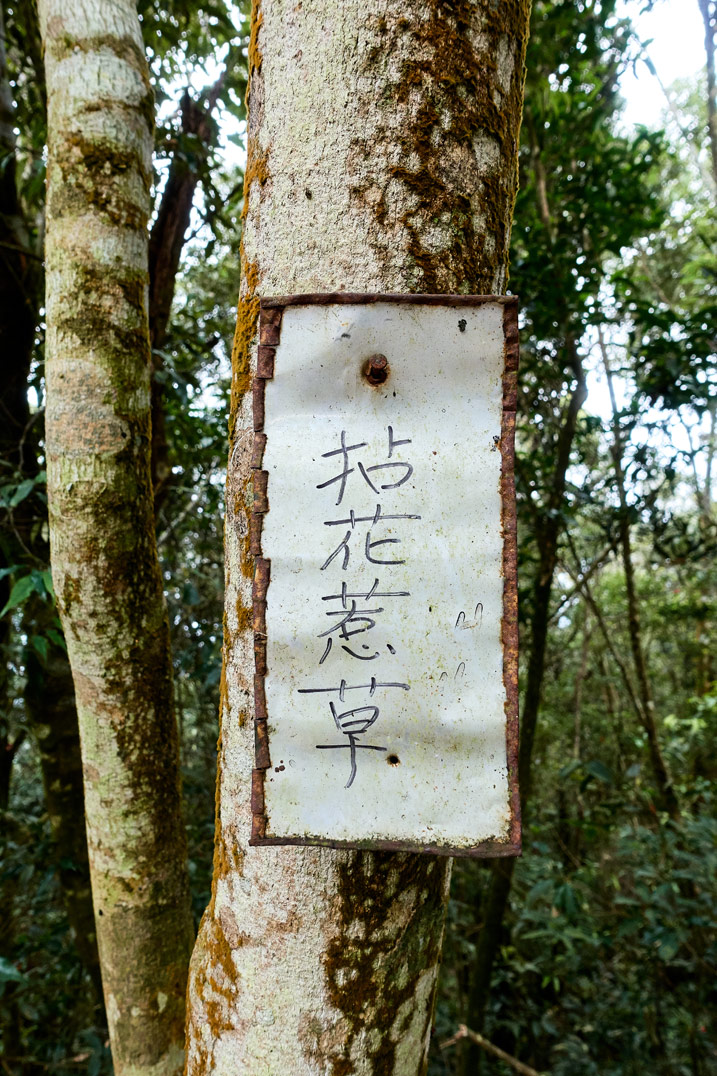 拈花惹草